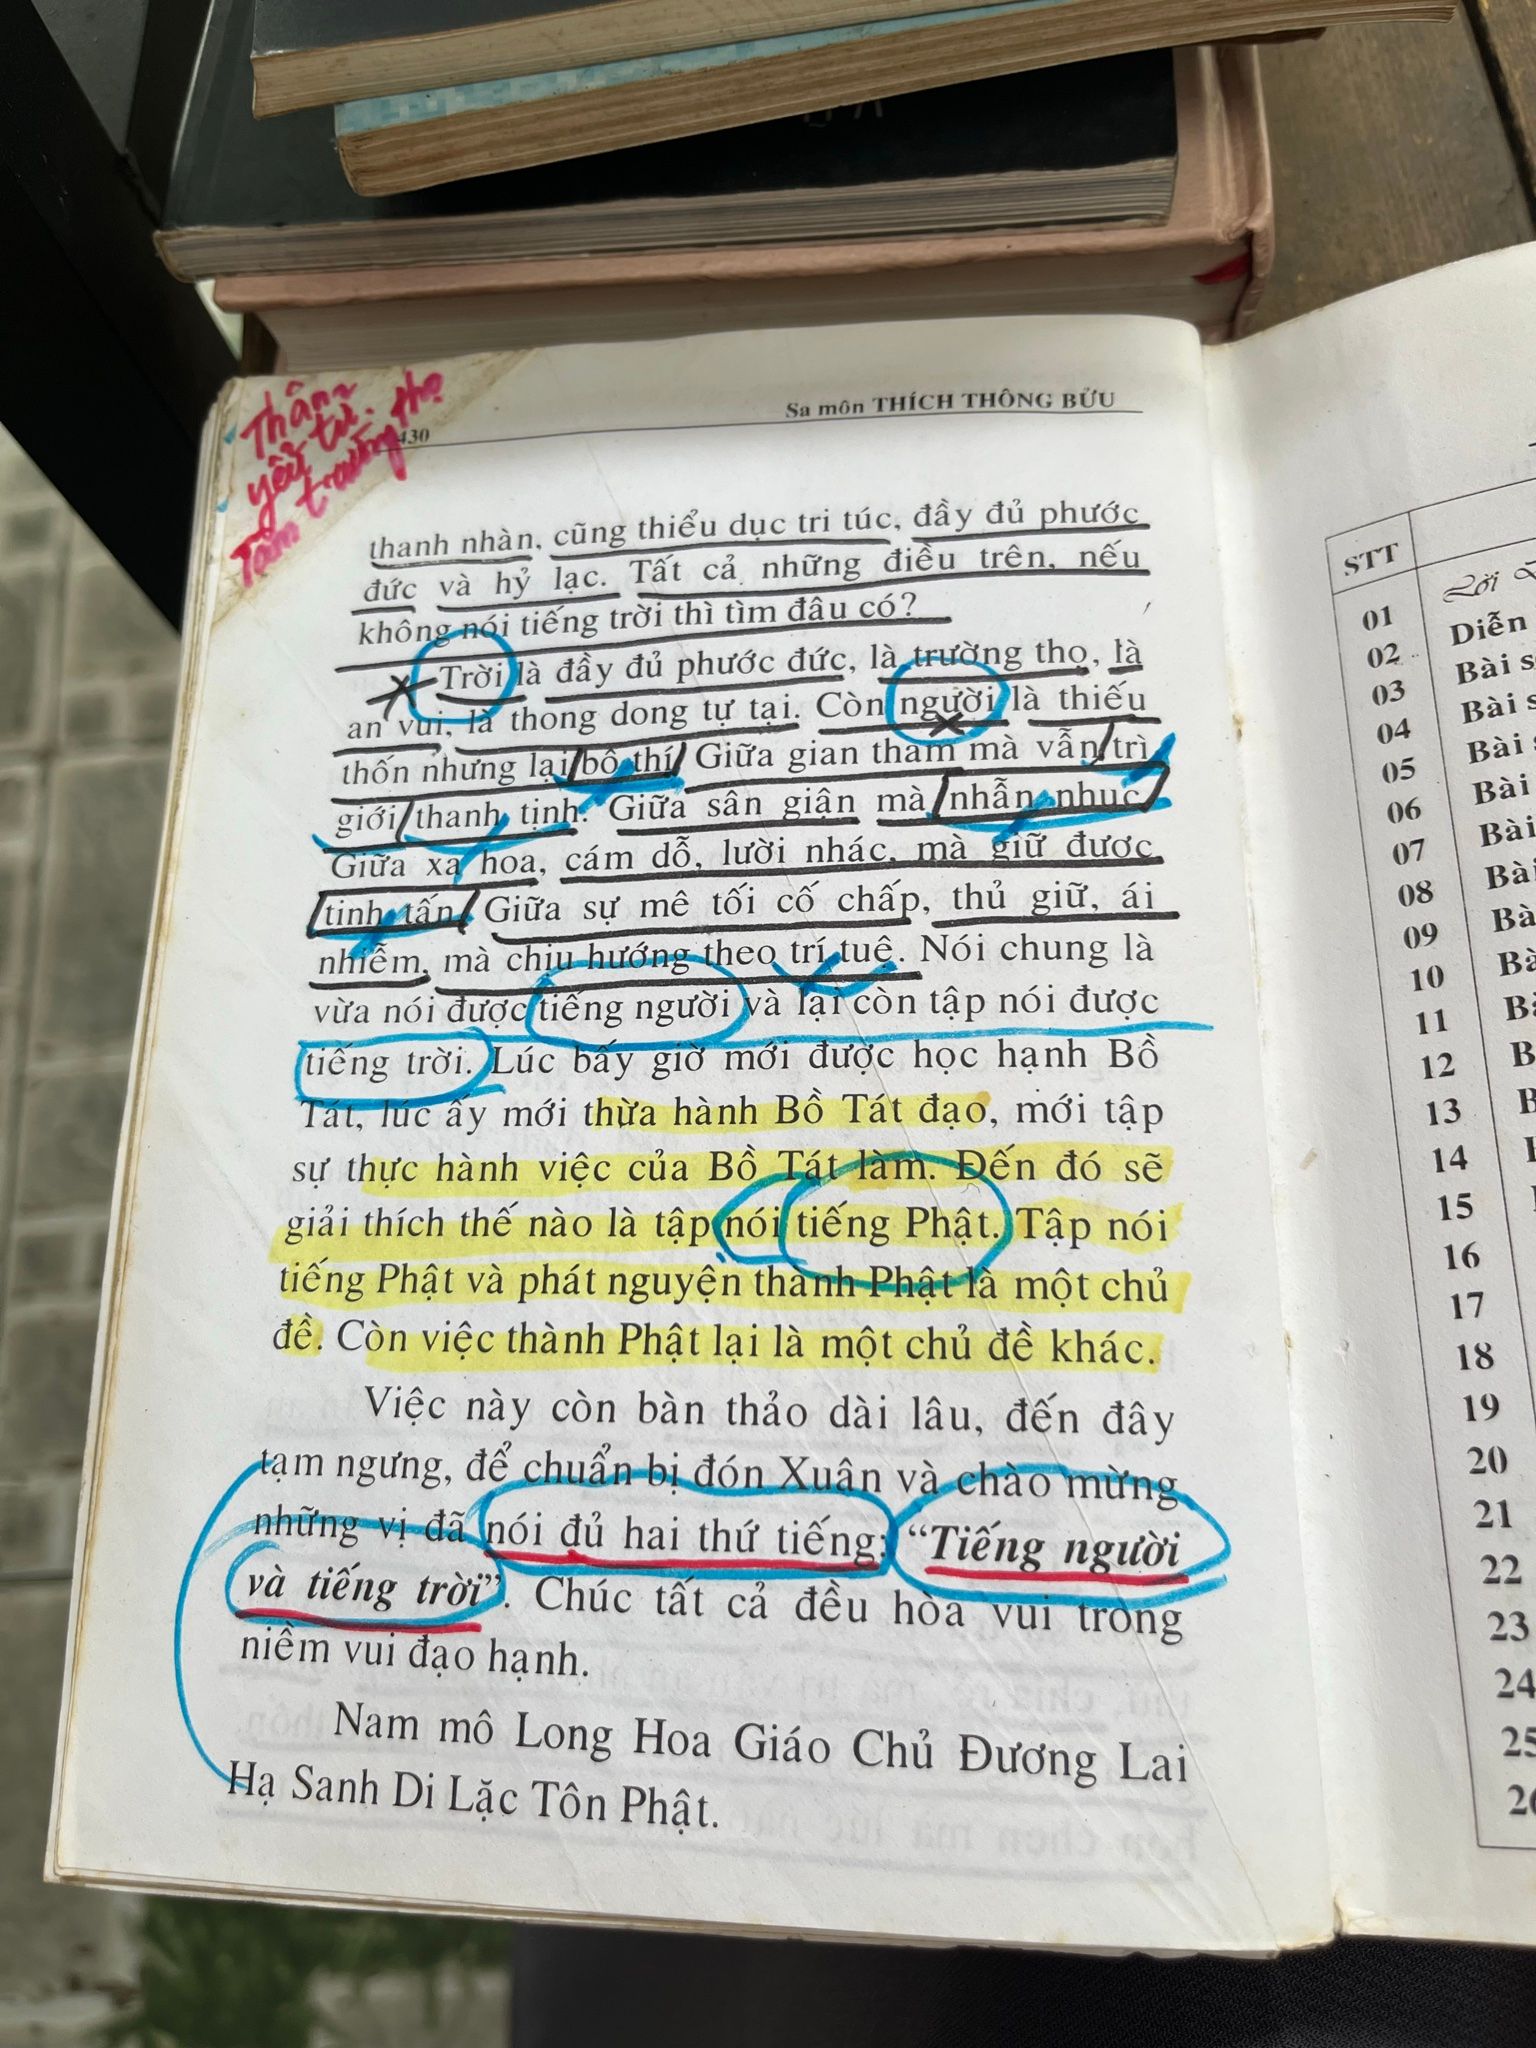 Thân
yểu tử.
Tâm trường thọ
430
Sa môn THÍCH THÔNG BỬU
thanh nhàn, cũng thiểu dục tri túc, đầy đủ phước
đức và hỷ lạc. Tất cả những điều trên, nếu
không nói tiếng trời thì tìm đâu có?
Trời là đầy đủ phước đức, là trường thọ, là
an vui, là thong dong tự tại. Còn người là thiếu
thốn nhưng lại bố thí. Giữa gian tham mà vẫn trì
giới thanh tịnh. Giữa sân giận mà nhẫn nhục.
Giữa xa hoa, cám dỗ, lười nhác, mà giữ được
tinh tấn. Giữa sự mê tối cố chấp, thủ giữ, ái
nhiễm, mà chịu hướng theo trí tuệ. Nói chung là
vừa nói được tiếng người và lại còn tập nói được
tiếng trời. Lúc bấy giờ mới được học hạnh Bồ
Tát, lúc ấy mới thừa hành Bồ Tát đạo, mới tập
sự thực hành việc của Bồ Tát làm. Đến đó sẽ
giải thích thế nào là tập nói tiếng Phật. Tập nói
tiếng Phật và phát nguyện thành Phật là một chủ
đề. Còn việc thành Phật lại là một chủ đề khác.
Việc này còn bàn thảo dài lâu, đến đây
tạm ngưng, để chuẩn bị đón Xuân và chào mừng
những vị đã nói đủ hai thứ tiếng: “Tiếng người
và tiếng trời”. Chúc tất cả đều hòa vui trong
niềm vui đạo hạnh.
Nam mô Long Hoa Giáo Chủ Đương Lai
Hạ Sanh Di Lặc Tôn Phật.
STT
Lời
01 Diễn
02 Bài
03 Bài
04 Bài
05 Bài
06 Bài
07 Bài
08
09
10
11
12
13
14
15
16
17
18
19
20
21
22
23
24
25